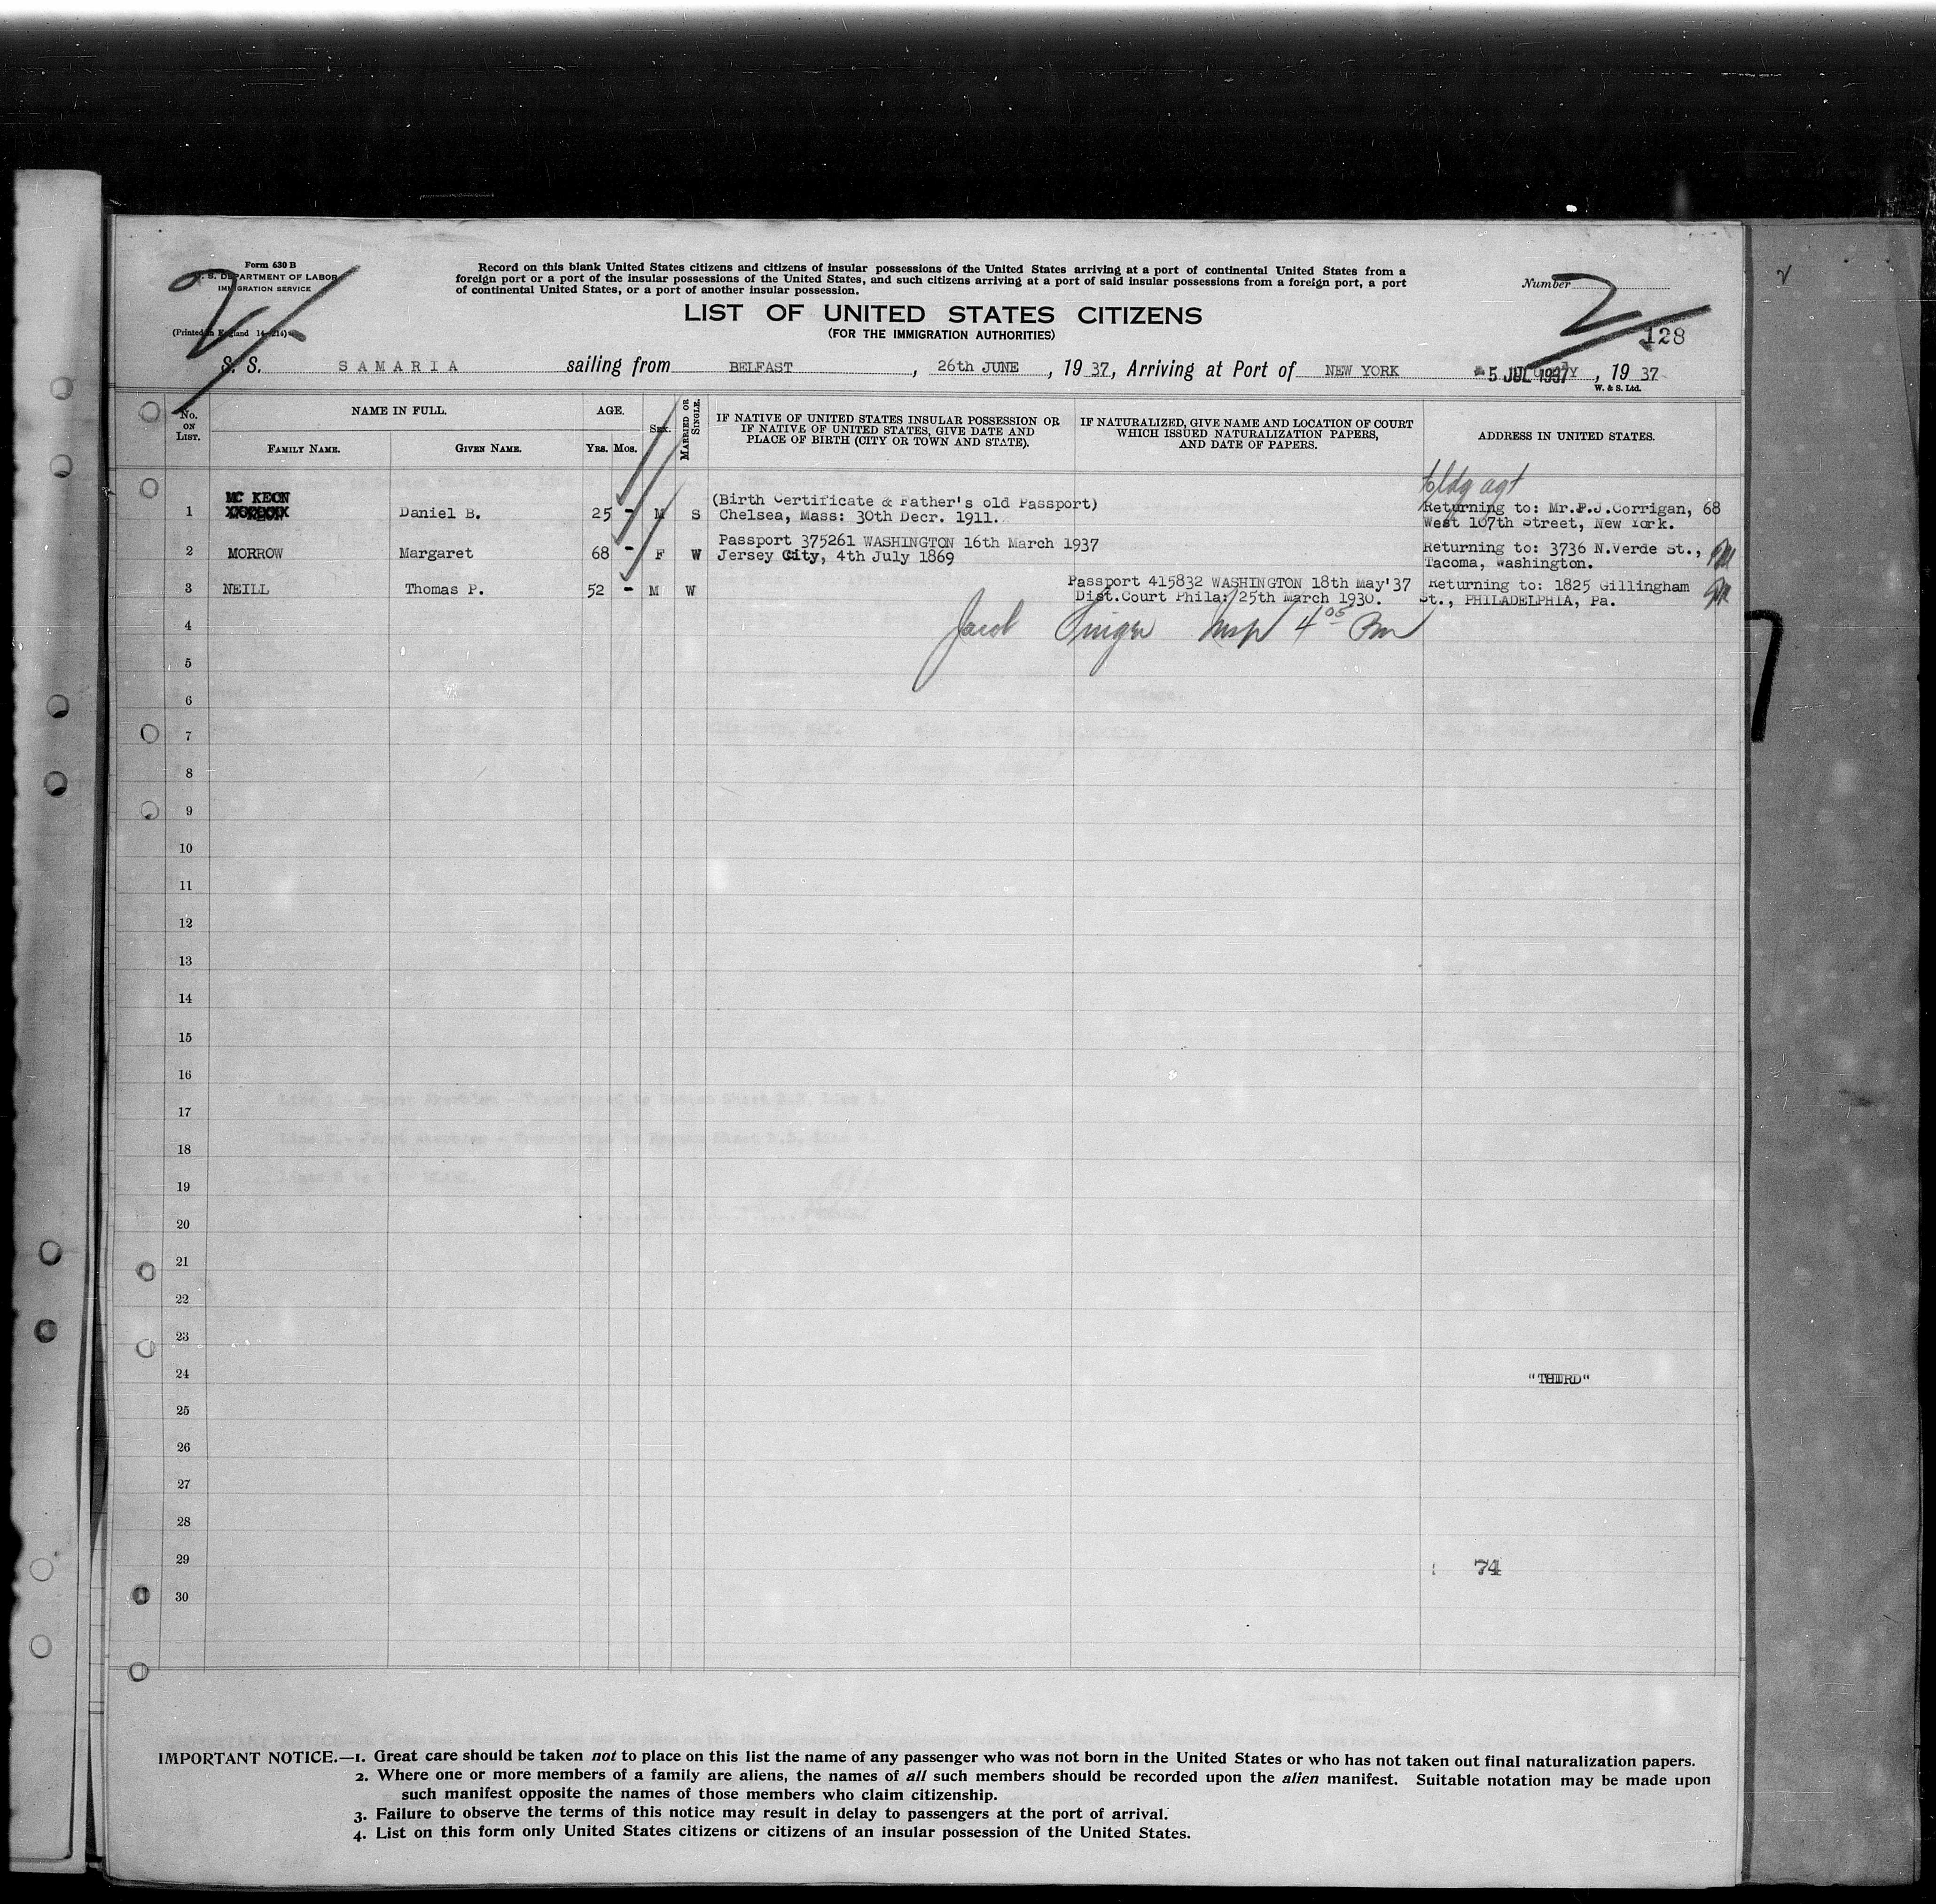 Form 630 B
U. S. DEPARTMENT OF LABOR
IMMIGRATION SERVICE
(Printed in England
Record on this blank United States citizens and citizens of insular possessions of the United States arriving at a port of continental United States from a
foreign port or a port of the insular possessions of the United States, and such citizens arriving at a port of said insular possessions from a foreign port, a port
of continental United States, or a port of another insular possession.
Number 2
128
LIST OF UNITED STATES CITIZENS
(FOR THE IMMIGRATION AUTHORITIES)
S. S. SAMARIA sailing from BELFAST, 26th JUNE, 1937, Arriving at Port of NEW YORK 5 JUL 1937, 1937
W. & S. Ltd.
No. ON LIST. NAME IN FULL. AGE. SEX. MARRIED OR SINGLE. IF NATIVE OF UNITED STATES INSULAR POSSESSION OR IF NATIVE OF UNITED STATES, GIVE DATE AND PLACE OF BIRTH (CITY OR TOWN AND STATE). IF NATURALIZED, GIVE NAME AND LOCATION OF COURT WHICH ISSUED NATURALIZATION PAPERS, AND DATE OF PAPERS. ADDRESS IN UNITED STATES.
FAMILY NAME. GIVEN NAME. YRS. MOS.
bldg agt
1 MC KEON Daniel B. 25 - M S (Birth Certificate & Father's old Passport) Returning to: Mr.P.J.Corrigan, 68
Chelsea, Mass: 30th Decr. 1911. West 107th Street, New York.
2 MORROW Margaret 68 - F W Passport 375261 WASHINGTON 16th March 1937 Returning to: 3736 N.Verde St.,
Jersey City, 4th July 1869 Tacoma, Washington.
3 NEILL Thomas P. 52 - M W Passport 415832 WASHINGTON 18th May'37 Returning to: 1825 Gillingham
Dist.Court Phila: 25th March 1930. St., PHILADELPHIA, Pa.
4 Jacob Singer Insp 4 05 Pm
5
6
7
8
9
10
11
12
13
14
15
16
17
18
19
20
21
22
23
24 "THIRD"
25
26
27
28
29 74
30
IMPORTANT NOTICE.—1. Great care should be taken not to place on this list the name of any passenger who was not born in the United States or who has not taken out final naturalization papers.
2. Where one or more members of a family are aliens, the names of all such members should be recorded upon the alien manifest. Suitable notation may be made upon
such manifest opposite the names of those members who claim citizenship.
3. Failure to observe the terms of this notice may result in delay to passengers at the port of arrival.
4. List on this form only United States citizens or citizens of an insular possession of the United States.